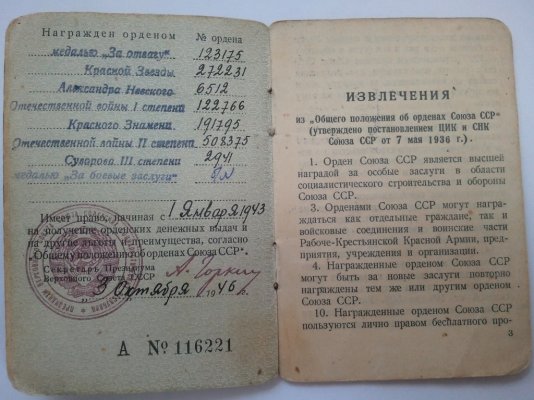 Награжден орденом № ордена
медалью „За отвагу" 123175
Красной Звезды 272231
Александра Невского 6512
Отечественной войны I степени 122766
Красного Знамени 191795
Отечественной войны II степени 508375
Суворова III степени 2941
медалью „За боевые заслуги"
Имеет право, начиная с 1 Января 1943
на получение орденских денежных выдач и
на другие льготы и преимущества, согласно
„Общему положению об орденах Союза ССР".
Секретарь Президиума
Верховного Совета СССР А. Горкин
3 Октября 1946 г.
А № 116221
ИЗВЛЕЧЕНИЯ
из „Общего положения об орденах Союза ССР"
(утверждено постановлением ЦИК и СНК
Союза ССР от 7 мая 1936 г.).
1. Орден Союза ССР является высшей
наградой за особые заслуги в области
социалистического строительства и обороны
Союза ССР.
3. Орденами Союза ССР могут награ-
ждаться как отдельные граждане, так и
войсковые соединения и воинские части
Рабоче-Крестьянской Красной Армии, пред-
приятия, учреждения и организации.
4. Награжденные орденом Союза ССР
могут быть за новые заслуги повторно
награждены тем же или другим орденом
Союза ССР.
10. Награжденные орденом Союза ССР
пользуются лично правом бесплатного про-
3